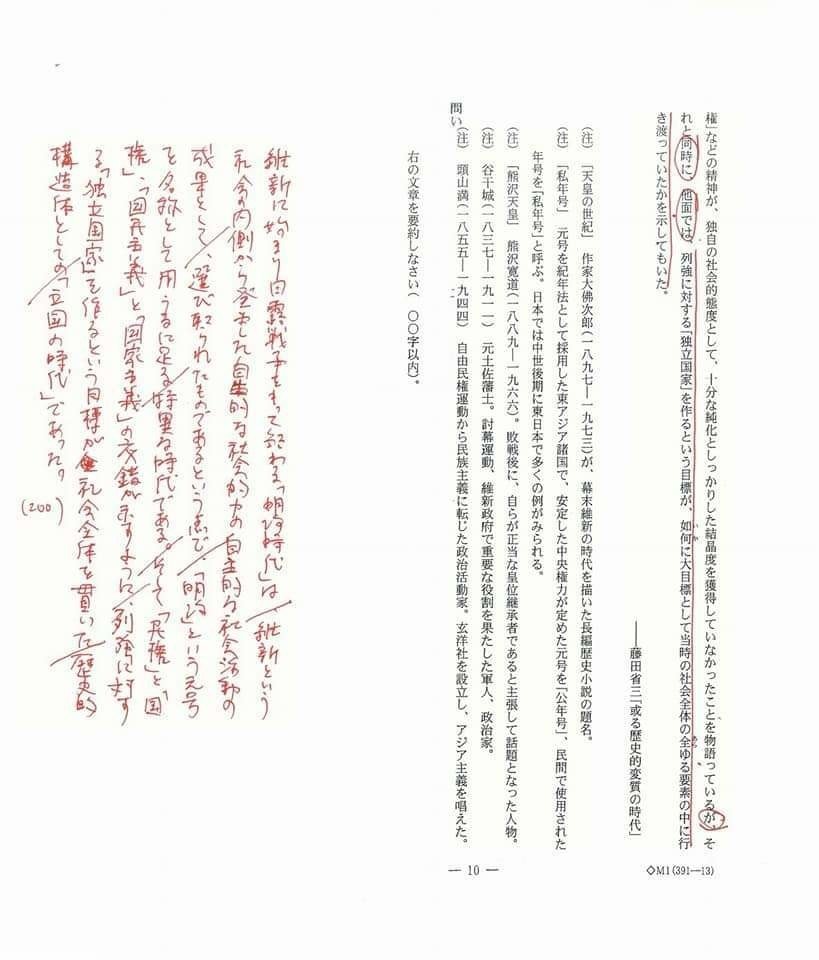 権」などの精神が、独自の社会的態度として、十分な純化としっかりした結晶度を獲得していなかったことを物語っているが、そ
れと同時に、他面では、列強に対する「独立国家」を作るという目標が、如何に大目標として当時の社会全体の全ゆる要素の中に行
き渡っていたかを示してもいた。
――藤田省三「或る歴史的変質の時代」
(注) 「天皇の世紀」 作家大佛次郎(一八九七―一九七三)が、幕末維新の時代を描いた長編歴史小説の題名。
(注) 「私年号」 元号を紀年法として採用した東アジア諸国で、安定した中央権力が定めた元号を「公年号」、民間で使用された
年号を「私年号」と呼ぶ。日本では中世後期に東日本で多くの例がみられる。
(注) 「熊沢天皇」 熊沢寛道(一八八九―一九六六)。敗戦後に、自らが正当な皇位継承者であると主張して話題となった人物。
(注) 谷干城(一八三七―一九一一) 元土佐藩士。討幕運動、維新政府で重要な役割を果たした軍人、政治家。
(注) 頭山満(一八五五―一九四四) 自由民権運動から民族主義に転じた政治活動家。玄洋社を設立し、アジア主義を唱えた。
問い
右の文章を要約しなさい( 〇〇字以内)。
維新に始まり日露戦争をもって終わる「明治時代」は、維新という
社会の内側から発生した自生的な社会的力の自主的な社会活動の
成果として、選び取られたものであるという点で、「明治」という元号
を名称として用うるに足る特異な時代である。そして「民権」と「国
権」、「国民主義」と「国家主義」の交錯が示すように、列強に対す
る「独立国家」を作るという目標が社会全体を貫いた歴史的
構造体としての「立国の時代」であった。
(200)
― 10 ―
◇M1(391―13)